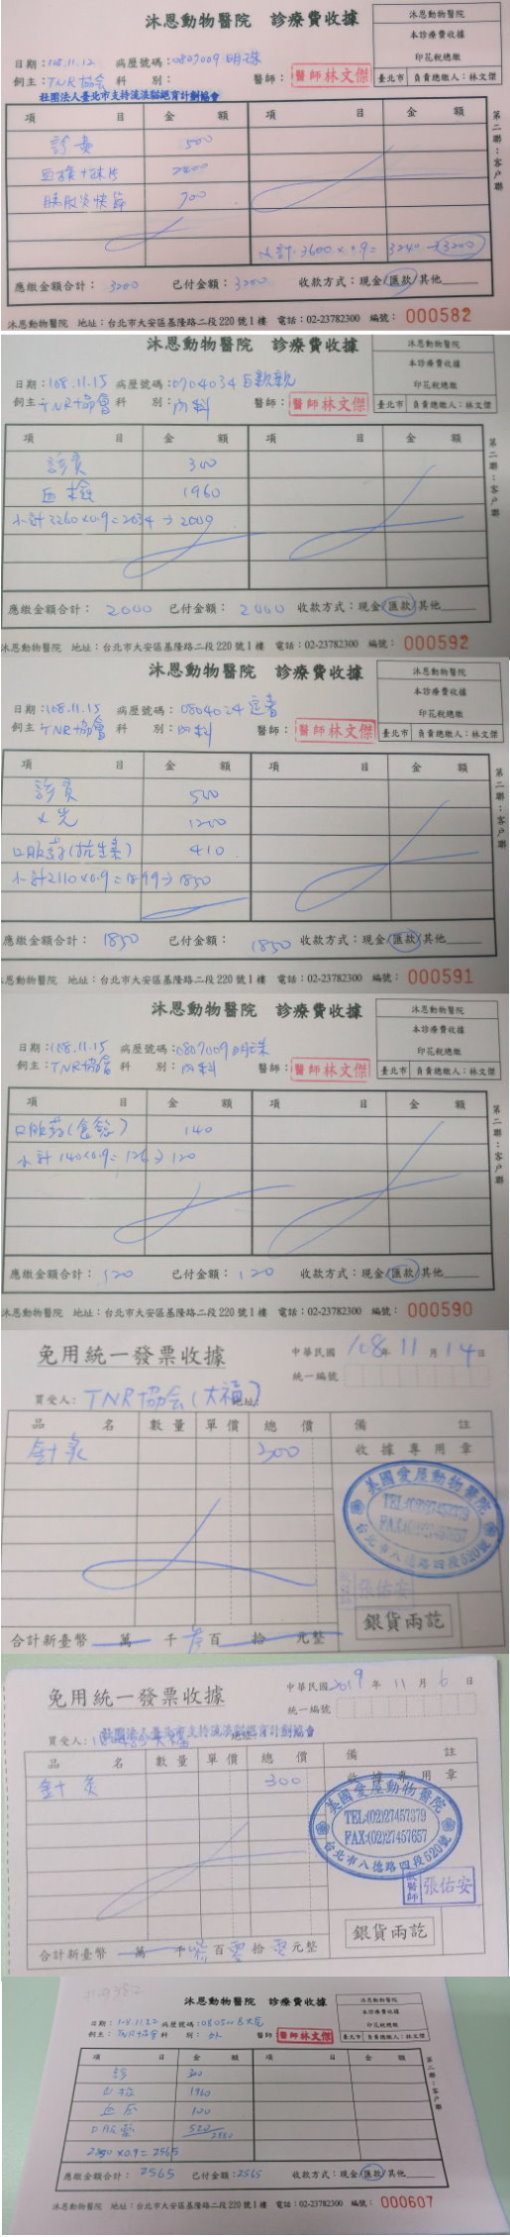 沐恩動物醫院 診療費收據
沐恩動物醫院
本診療費收據
印花稅總繳
臺北市 負責總繳人：林文傑
日期：108.11.12 病歷號碼：0807009 明珠
飼主：TNR協会 科 別： 醫師：醫師林文傑
社團法人臺北市支持流浪貓絕育計劃協會
項 目 金 額 項 目 金 額
診費 500
2400
700
小計：3600×0.9=3240→3200
第二聯：客戶聯
應繳金額合計：3200 已付金額：3200 收款方式：現金/匯款/其他
沐恩動物醫院 地址：台北市大安區基隆路二段220號1樓 電話：02-23782300 編號：000582
沐恩動物醫院 診療費收據
沐恩動物醫院
本診療費收據
印花稅總繳
臺北市 負責總繳人：林文傑
日期：108.11.15 病歷號碼：0904034
飼主：TNR協會 科 別：內科 醫師：醫師林文傑
項 目 金 額 項 目 金 額
診費 300
血檢 1960
小計2260×0.9=2034→2000
第二聯：客戶聯
應繳金額合計：2000 已付金額：2000 收款方式：現金/匯款/其他
沐恩動物醫院 地址：台北市大安區基隆路二段220號1樓 電話：02-23782300 編號：000592
沐恩動物醫院 診療費收據
沐恩動物醫院
本診療費收據
印花稅總繳
臺北市 負責總繳人：林文傑
日期：108.11.15 病歷號碼：0804024
飼主：TNR協會 科 別：內科 醫師：醫師林文傑
項 目 金 額 項 目 金 額
診費 500
X光 1200
口服藥(抗生素) 410
小計2110×0.9=1899→1850
第二聯：客戶聯
應繳金額合計：1850 已付金額：1850 收款方式：現金/匯款/其他
沐恩動物醫院 地址：台北市大安區基隆路二段220號1樓 電話：02-23782300 編號：000591
沐恩動物醫院 診療費收據
沐恩動物醫院
本診療費收據
印花稅總繳
臺北市 負責總繳人：林文傑
日期：108.11.15 病歷號碼：0807009 明珠
飼主：TNR協會 科 別：內科 醫師：醫師林文傑
項 目 金 額 項 目 金 額
口服藥 140
小計140×0.9=126→120
第二聯：客戶聯
應繳金額合計：120 已付金額：120 收款方式：現金/匯款/其他
沐恩動物醫院 地址：台北市大安區基隆路二段220號1樓 電話：02-23782300 編號：000590
免用統一發票收據
中華民國 108年 11月 14日
統一編號
買受人：TNR協会(大福)
品 名 數量 單價 總 價 備 註
針灸 300 收據專用章
美國愛屋動物醫院
TEL:(02)27457379
FAX:(02)27457657
台北市八德路四段520號
張佑安
銀貨兩訖
合計新臺幣 萬 千 叁百 拾 元整
免用統一發票收據
中華民國 2019年 11月 6日
統一編號
買受人：社團法人臺北市支持流浪貓絕育計劃協會
品 名 數量 單價 總 價 備 註
針灸 300 收據專用章
美國愛屋動物醫院
TEL:(02)27457379
FAX:(02)27457657
台北市八德路四段520號
獸醫師 張佑安
銀貨兩訖
合計新臺幣 萬 千 叁百零拾零元整
沐恩動物醫院 診療費收據
沐恩動物醫院
本診療費收據
印花稅總繳
臺北市 負責總繳人：林文傑
日期：108.11.22 病歷號碼：
飼主：TNR協會 科 別： 醫師：醫師林文傑
項 目 金 額 項 目 金 額
診 300
血檢 1960
100
口服藥 520
2850
2850×0.9=2565
第二聯：客戶聯
應繳金額合計：2565 已付金額：2565 收款方式：現金/匯款/其他
沐恩動物醫院 地址：台北市大安區基隆路二段220號1樓 電話：02-23782300 編號：000607